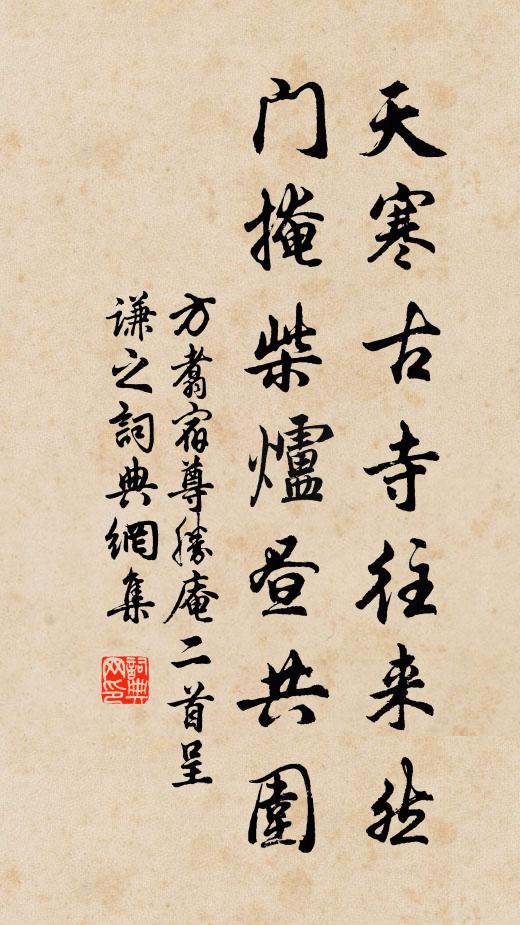 天寒古寺往来
门掩柴爐昼共圍
方翥宿尊勝庵二首呈
謙之詞典網集
詞典网印